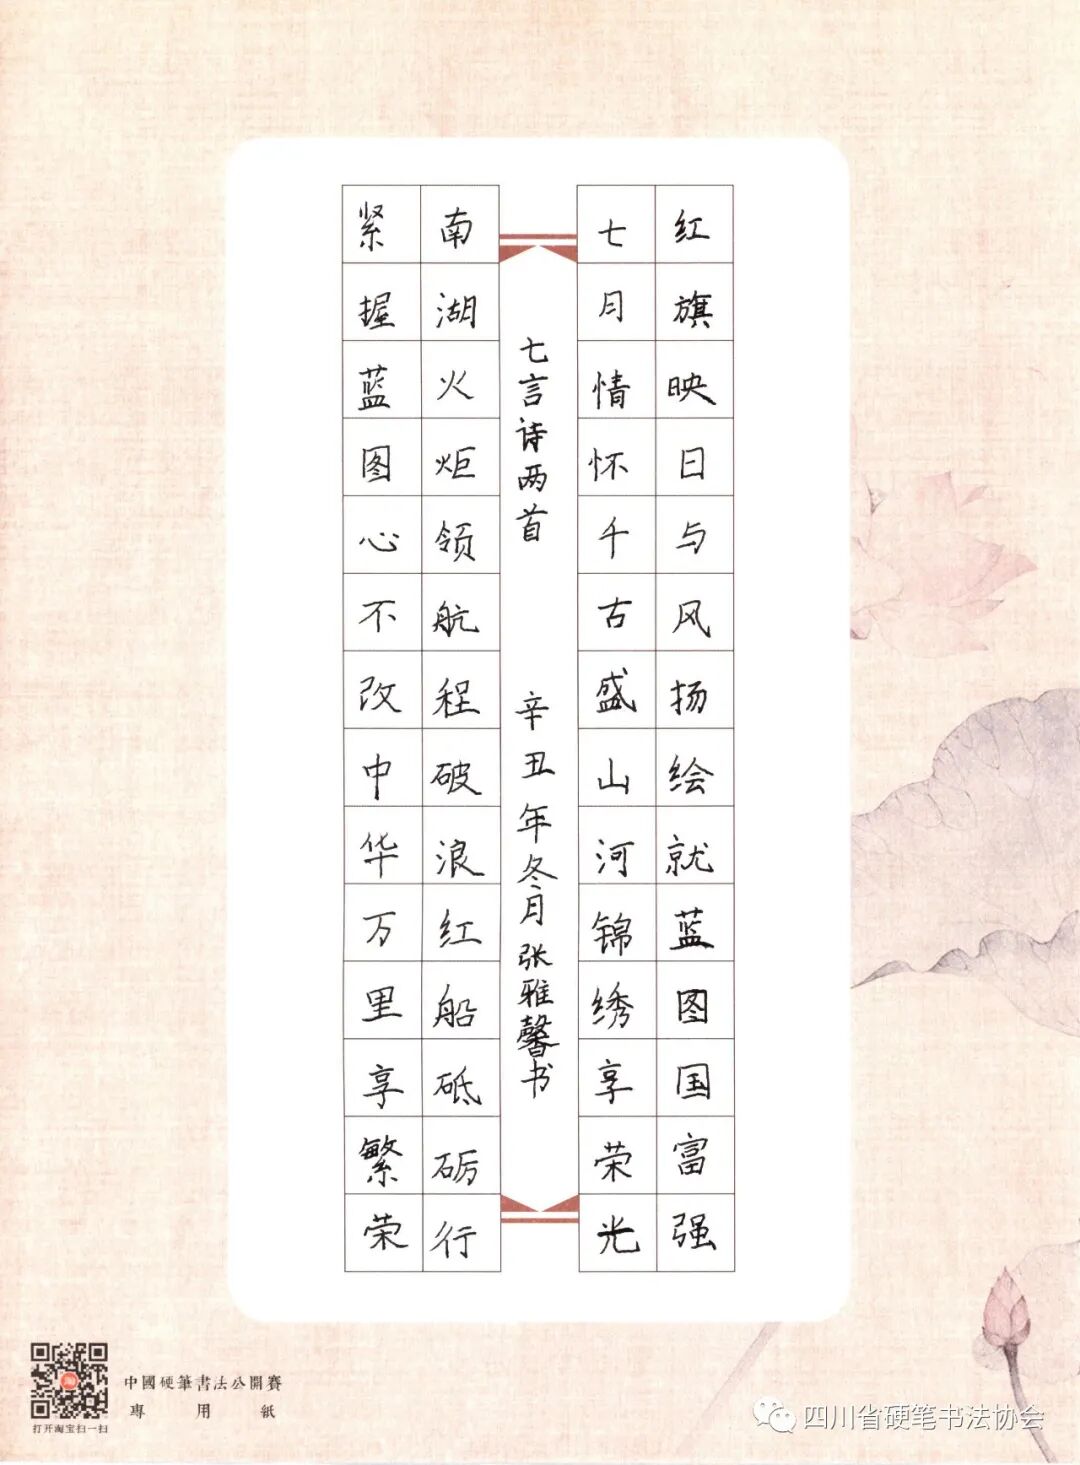 红旗映日与风扬绘就蓝图国富强
七月情怀千古盛山河锦绣享荣光
七言诗两首 辛丑年冬月张雅馨书
南湖火炬领航程破浪红船砥砺行
紧握蓝图心不改中华万里享繁荣
中國硬筆書法公開賽
專用紙
打开淘宝扫一扫
四川省硬笔书法协会